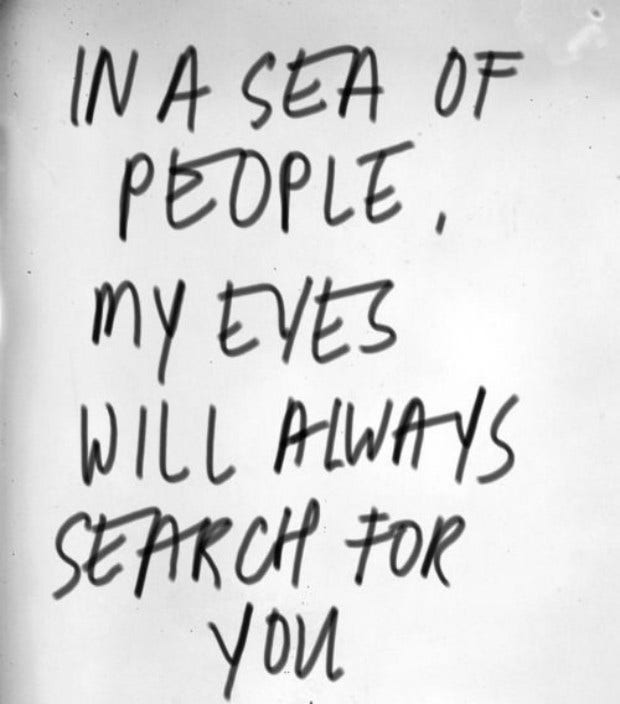 IN A SEA OF
PEOPLE,
MY EYES
WILL ALWAYS
SEARCH FOR
YOU